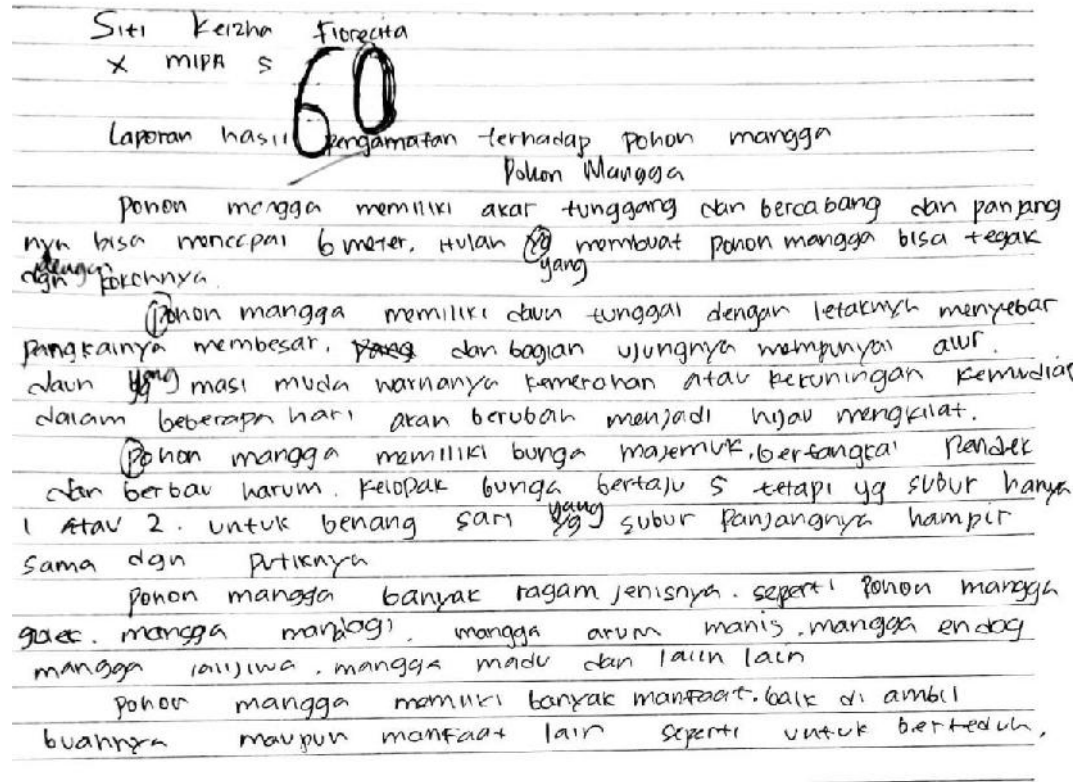 Siti Keizha Fiorecita
X MIPA 5
60
Laporan hasil pengamatan terhadap pohon mangga
Pohon Mangga
Pohon mangga memiliki akar tunggang dan bercabang dan panjang
nya bisa mencapai 6 meter. itulah yg yang membuat pohon mangga bisa tegak
dgn dengan kokohnya.
Pohon mangga memiliki daun tunggal dengan letaknya menyebar
pangkalnya membesar. yang dan bagian ujungnya mempunyai alur.
daun yg yang masi muda warnanya kemerahan atau kekuningan kemudian
dalam beberapa hari akan berubah menjadi hijau mengkilat.
Pohon mangga memiliki bunga majemuk, bertangkai pendek
dan berbau harum. Kelopak bunga bertaju 5 tetapi yg subur hanya
1 atau 2. untuk benang sari yg yang subur panjangnya hampir
sama dgn putiknya
Pohon mangga banyak ragam jenisnya. seperti pohon mangga
mangga manalagi, mangga arum manis, mangga endog
mangga lalijiwa, mangga madu dan laiin lain
Pohon mangga memiliki banyak manfaat. baik di ambil
buahnya maupun manfaat lain seperti untuk berteduh.